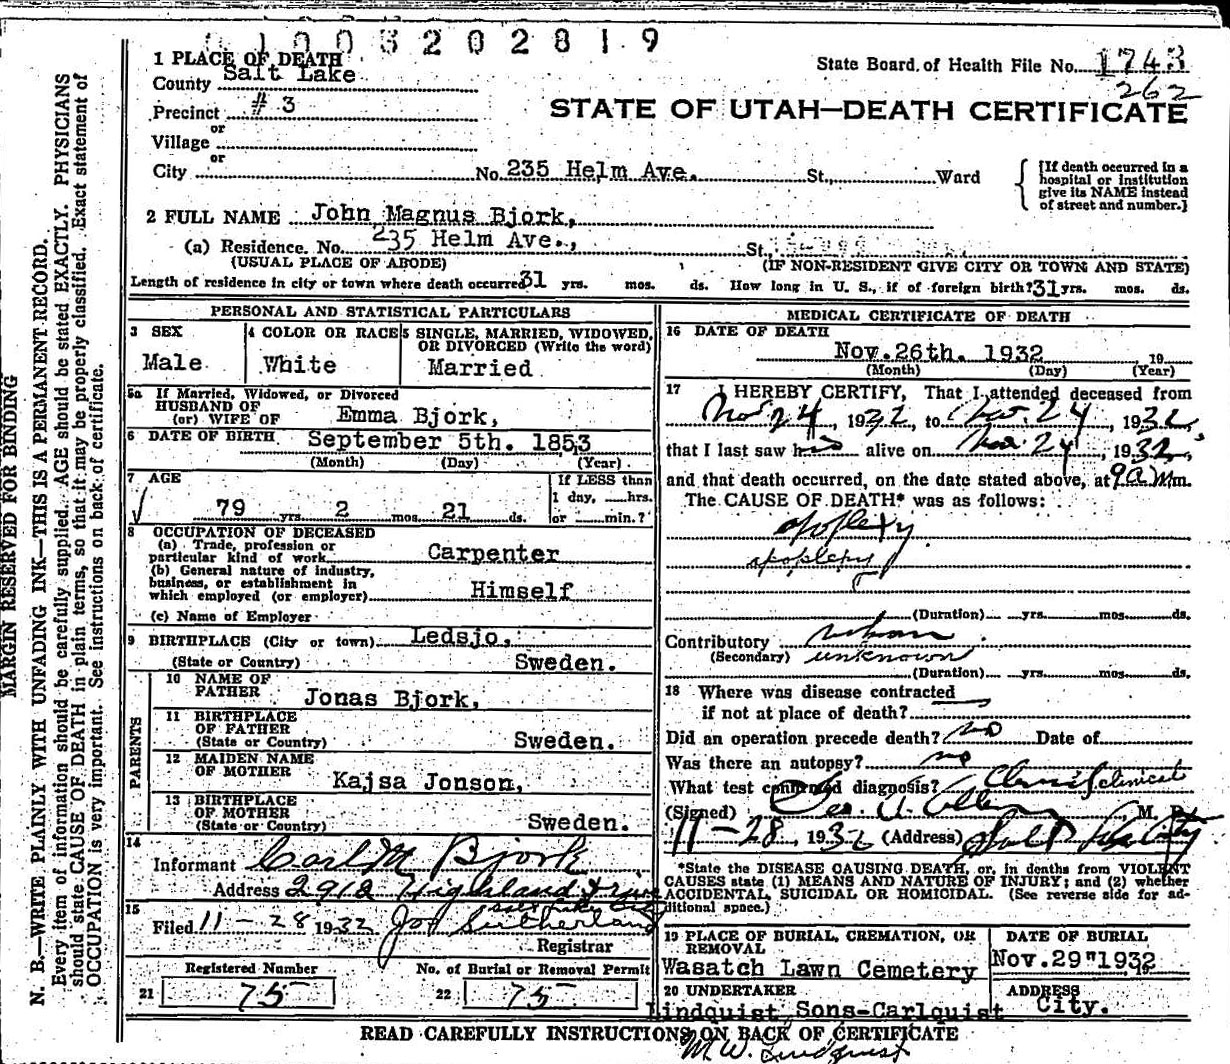 0 1 0 0 3 2 0 2 8 1 9
1 PLACE OF DEATH
State Board of Health File No. 1743
County Salt Lake
262
Precinct #3
STATE OF UTAH—DEATH CERTIFICATE
or
Village
or
City No. 235 Helm Ave. St., Ward
[If death occurred in a
hospital or institution
give its NAME instead
of street and number.]
2 FULL NAME John Magnus Bjork,
(a) Residence. No. 235 Helm Ave., St.,
(USUAL PLACE OF ABODE) (IF NON-RESIDENT GIVE CITY OR TOWN AND STATE)
Length of residence in city or town where death occurred 31 yrs. mos. ds. How long in U. S., if of foreign birth? 31 yrs. mos. ds.
PERSONAL AND STATISTICAL PARTICULARS
3 SEX
Male
4 COLOR OR RACE
White
5 SINGLE, MARRIED, WIDOWED,
OR DIVORCED (Write the word)
Married
5a If Married, Widowed, or Divorced
HUSBAND OF
(or) WIFE OF Emma Bjork,
6 DATE OF BIRTH September 5th. 1853
(Month) (Day) (Year)
7 AGE
79 yrs. 2 mos. 21 ds.
If LESS than
1 day, hrs.
or min.?
8 OCCUPATION OF DECEASED
(a) Trade, profession or
particular kind of work Carpenter
(b) General nature of industry,
business, or establishment in
which employed (or employer) Himself
(c) Name of Employer
9 BIRTHPLACE (City or town) Ledsjo,
(State or Country) Sweden.
PARENTS
10 NAME OF
FATHER Jonas Bjork,
11 BIRTHPLACE
OF FATHER
(State or Country) Sweden.
12 MAIDEN NAME
OF MOTHER Kajsa Jonson,
13 BIRTHPLACE
OF MOTHER
(State or Country) Sweden.
14
Informant Carl M Bjork
Address 2912 Highland Drive
Salt Lake City
15
Filed 11-28 1932 Jos Sutherland
Registrar
Registered Number
21 75
No. of Burial or Removal Permit
22 75
MEDICAL CERTIFICATE OF DEATH
16 DATE OF DEATH
Nov. 26th. 1932 19
(Month) (Day) (Year)
17 I HEREBY CERTIFY, That I attended deceased from
Nov 24 1932 to Nov. 24, 1932,
that I last saw h alive on Nov. 24, 1932,
and that death occurred, on the date stated above, at 9 a m.
The CAUSE OF DEATH* was as follows:
apoplexy
apoplexy
(Duration) yrs. mos. ds.
Contributory unknown
(Secondary) unknown
(Duration) yrs. mos. ds.
18 Where was disease contracted
if not at place of death?
Did an operation precede death? no Date of
Was there an autopsy? no
What test confirmed diagnosis? Clinical clinical
(Signed) Geo. M. D.
11-28, 1932 (Address) Salt Lake City
*State the DISEASE CAUSING DEATH, or, in deaths from VIOLENT
CAUSES state (1) MEANS AND NATURE OF INJURY; and (2) whether
ACCIDENTAL, SUICIDAL OR HOMICIDAL. (See reverse side for ad-
ditional space.)
19 PLACE OF BURIAL, CREMATION, OR
REMOVAL
Wasatch Lawn Cemetery
DATE OF BURIAL
Nov. 29" 1932 19
20 UNDERTAKER
Lindquist Sons-Carlquist
ADDRESS
City.
READ CAREFULLY INSTRUCTIONS ON BACK OF CERTIFICATE
M. W. Lindquist
MARGIN RESERVED FOR BINDING
N. B.—WRITE PLAINLY WITH UNFADING INK—THIS IS A PERMANENT RECORD.
Every item of information should be carefully supplied. AGE should be stated EXACTLY. PHYSICIANS
should state CAUSE OF DEATH in plain terms, so that it may be properly classified. Exact statement of
OCCUPATION is very important. See instructions on back of certificate.